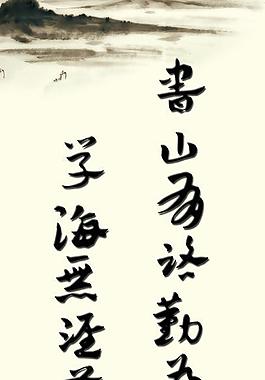 書山有路勤
学海無涯